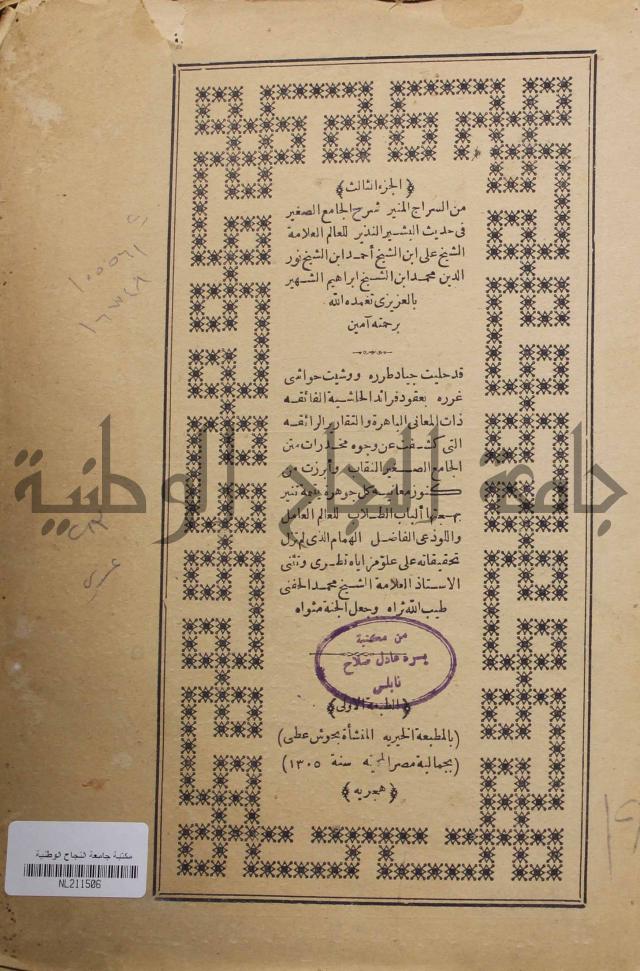 ﴿الجزء الثالث﴾
من السراج المنير شرح الجامع الصغير
فى حديث البشير النذير للعالم العلامة
الشيخ على ابن الشيخ أحمد ابن الشيخ نور
الدين محمد ابن الشيخ ابراهيم الشهير
بالعزيزى تغمده الله
برحمته آمين
قد حليت جياد طرره ووشيت حواشى
غرره بعقود فرائد الحاشية الفائقه
ذات المعانى الباهرة والتقارير الرائقه
التى كشفت عن وجوه مخدرات متن
الجامع الصغير النقاب وأبرزت من
كنوز معانيه كل جوهرة يتيمة تنير
ألباب الطلاب للعالم العامل
واللوذعى الفاضل الهمام الذى لم تزل
تحقيقاته على علو مزاياه تطرى وتثنى
الاستاذ العلامة الشيخ محمد الحفنى
طيب الله ثراه وجعل الجنة مثواه
من مكتبة
عادل صلاح
نابلس
﴿الطبعة الاولى﴾
(بالمطبعة الخيريه المنشأة بحوش عطى)
(بجمالية مصر المحميه سنة ١٣٠٥)
﴿هجريه﴾
جامعة النجاح الوطنية
مكتبة جامعة النجاح الوطنية
NL211506